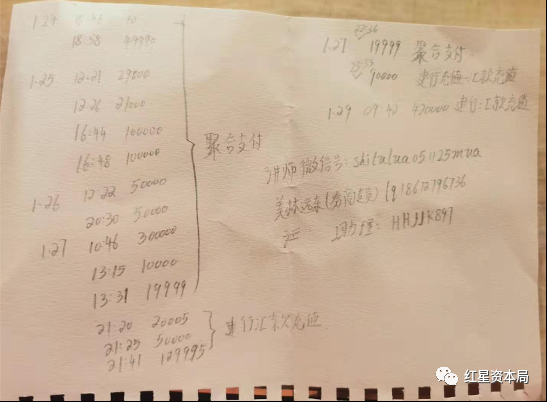 1.24
18:58 49990
1.25 12:21 29800
12:26 21000
16:44 100000
16:48 100000
1.26 12:22 50000
20:30 50000
1.27 10:46 300000
13:15 10000
13:31 19999
聚合支付
21:20 20005
21:25 50000
21:41 129995
建行汇款充值
1.27 19999 聚合支付
10000 建行充值 汇款充值
1.29 09:42 420000 建行汇款充值
讲师微信号:
HHJJK897
红星资本局